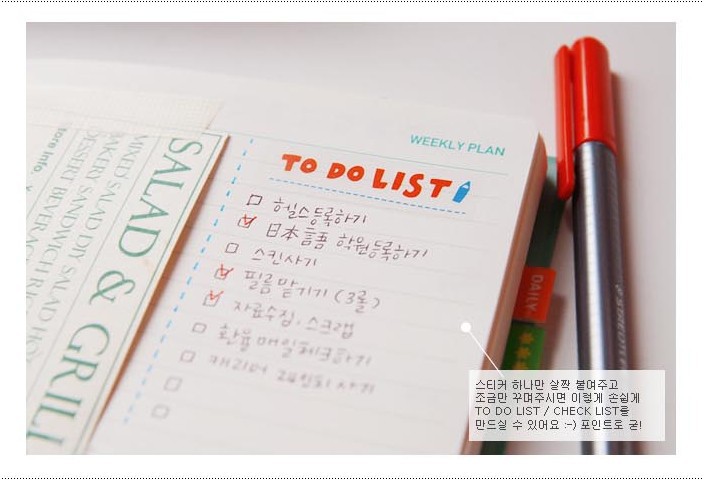 WEEKLY PLAN
TO DO LIST
헬스등록하기
日本語 학원등록하기
스킨사기
필름맡기기 (3롤)
자료수집, 스크랩
환율매일체크하기
캐리어
사기
SALAD & GRILL
MIXED SALAD DIY SALAD HOT
BAKERY SANDWICH RIC
DESSERT BEVERAG
tore Info.
DAILY
STAEDTLER
스티커 하나만 살짝 붙여주고
조금만 꾸며주시면 이렇게 손쉽게
TO DO LIST / CHECK LIST를
만드실 수 있어요 :-) 포인트로 굳!